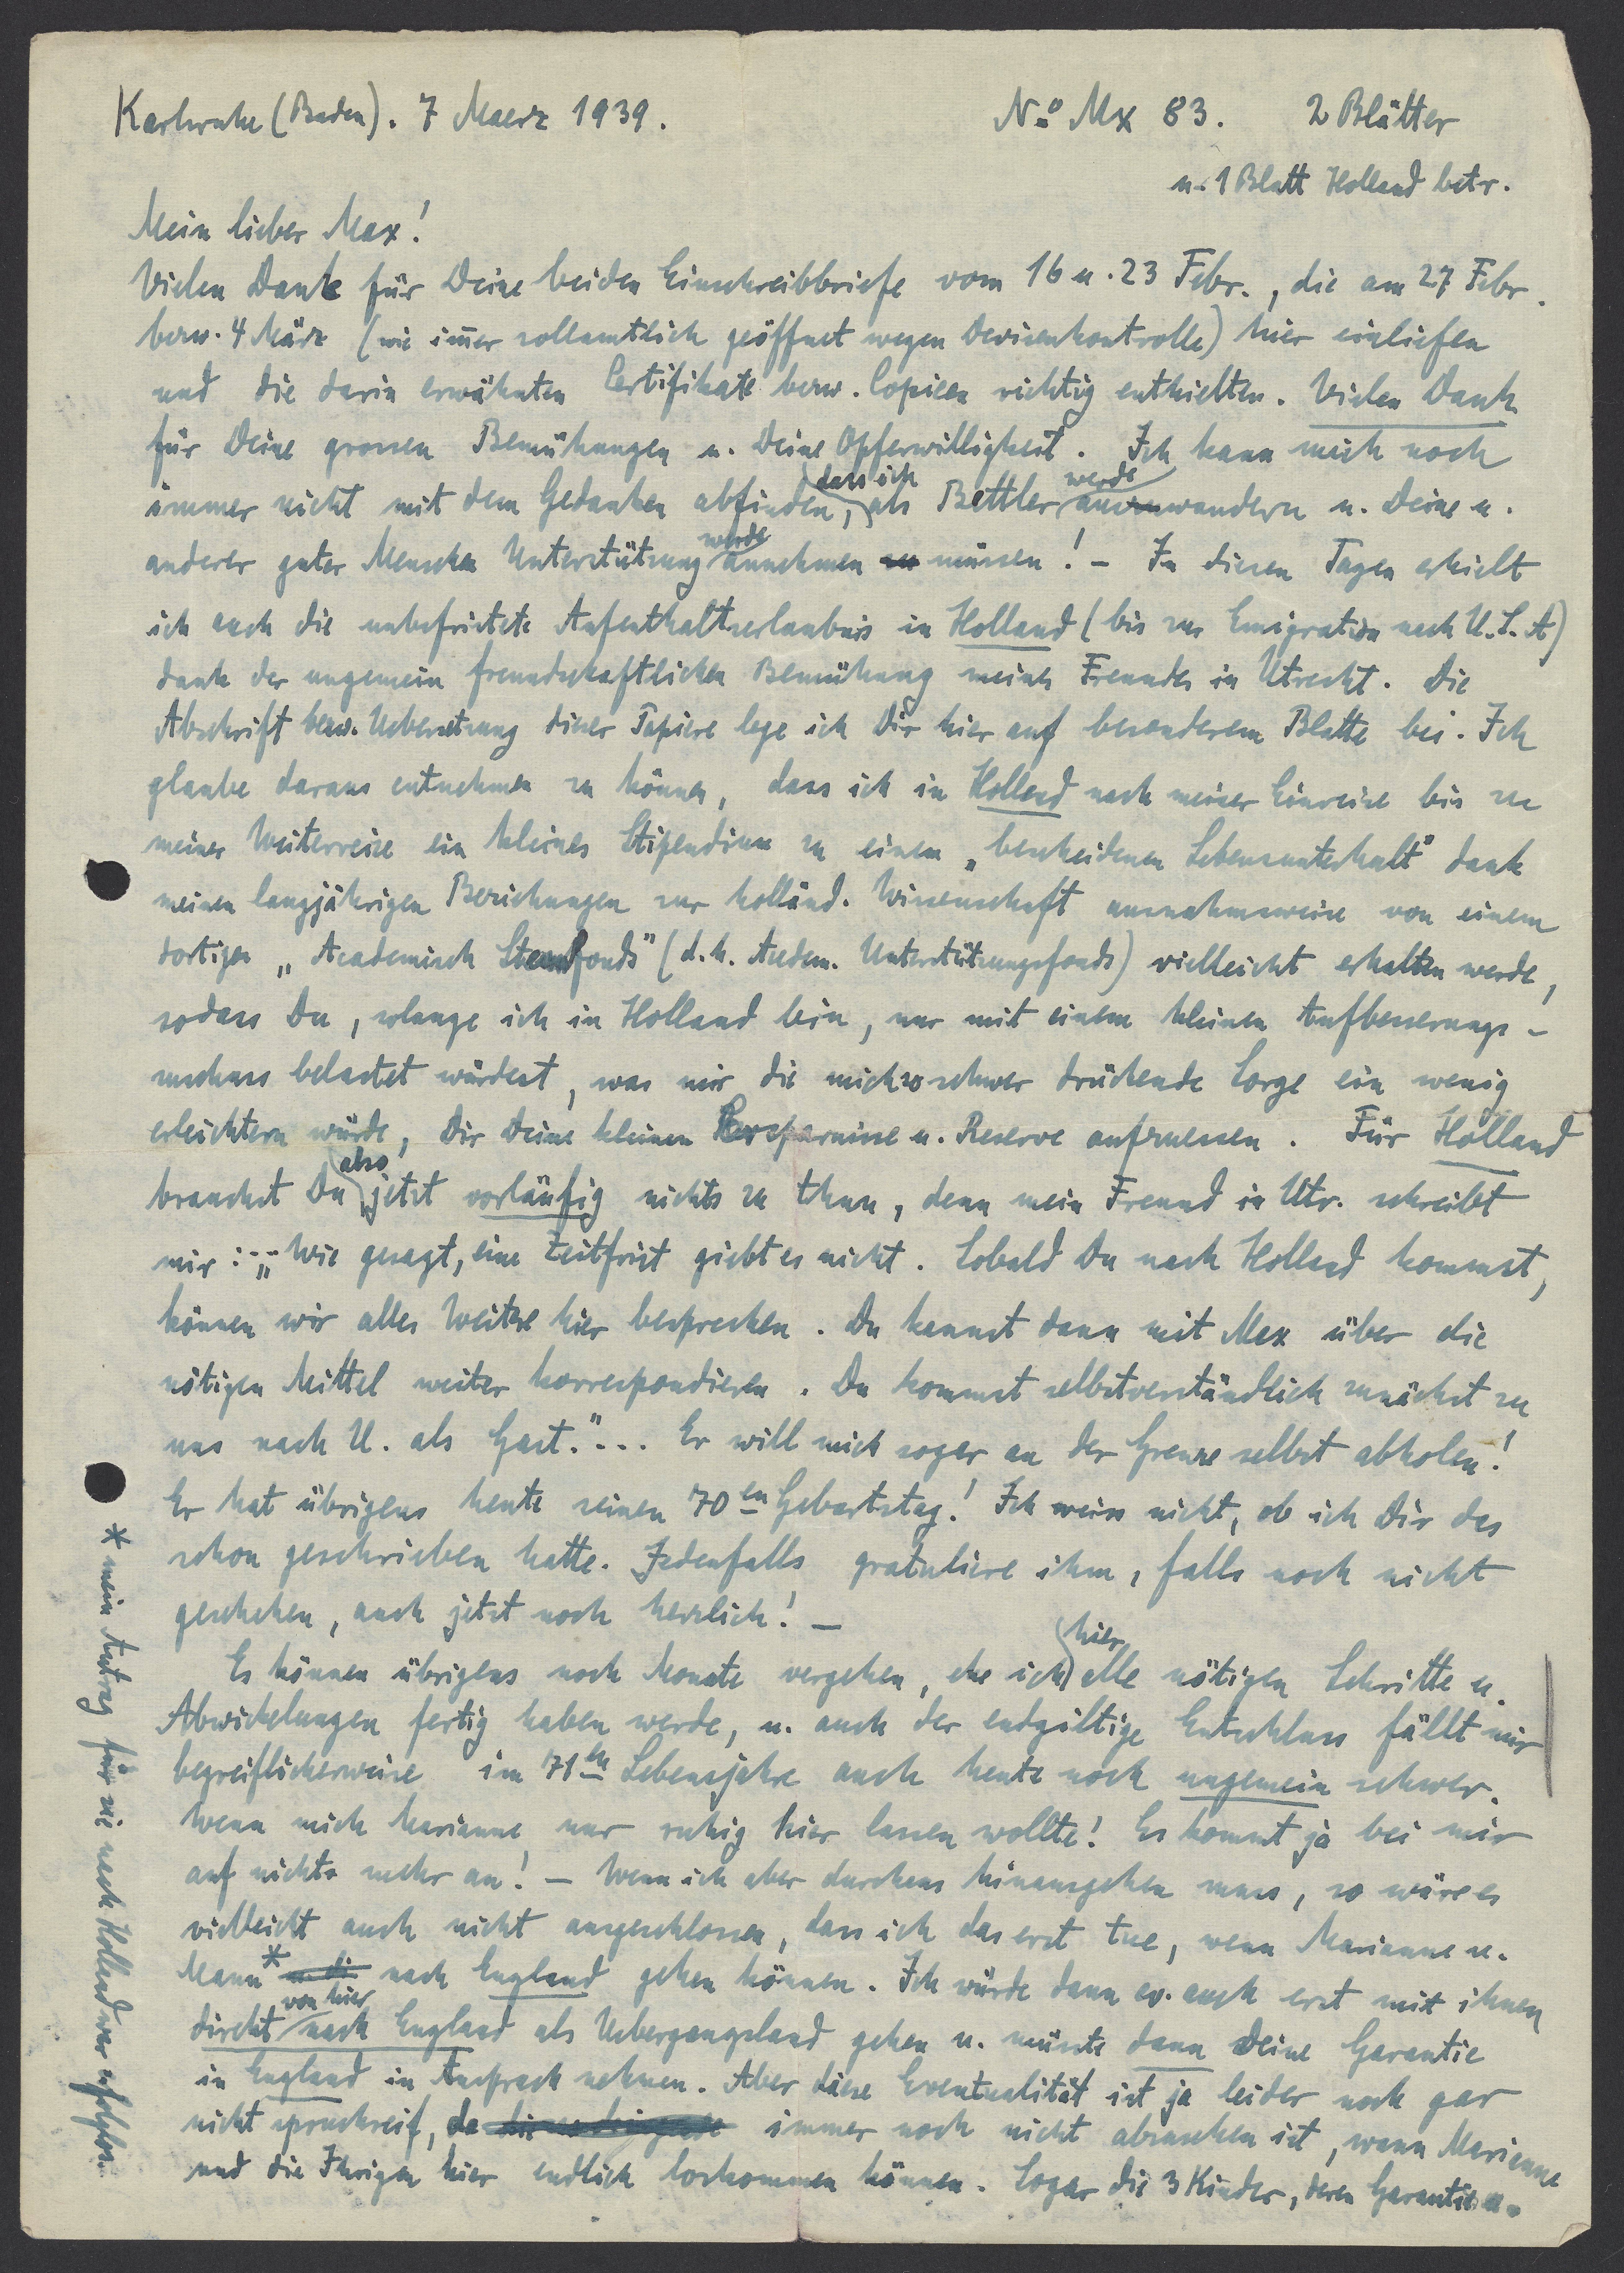 Karlsruhe (Baden). 7 Maerz 1939.
No Mx 83. 2 Blätter
u. 1 Blatt Holland betr.
Mein lieber Max!
Vielen Dank für Deine beiden Einschreibbriefe vom 16 u. 23 Febr., die am 27 Febr.
bezw. 4 März (wie im̅er zollamtlich geöffnet wegen Devisenkontrolle) hier einliefen
und die darin erwähnten Certifikate bezw. Copieen richtig enthielten. Vielen Dank
für Deine grossen Bemühungen u. Deine Opferwilligkeit. Ich kann mich noch
immer nicht mit dem Gedanken abfinden, dass ich als Bettler werde auswandern u. Deine u.
anderer guter Menschen Unterstützung werde annehmen zu müssen! – In diesen Tagen erhielt
ich auch die unbefristete Aufenthaltserlaubnis in Holland (bis zur Emigration nach U.S.A)
dank der ungemein freundschaftlichen Bemühung meines Freundes in Utrecht. Die
Abschrift bezw. Uebersetzung dieser Papiere lege ich Dir hier auf besonderem Blatte bei. Ich
glaube daraus entnehmen zu können, dass ich in Holland nach meiner Einreise bis zu
meiner Weiterreise ein kleines Stipendium zu einem „bescheidenen Lebensunterhalt" dank
meinen langjährigen Beziehungen zur holländ. Wissenschaft ausnahmsweise von einem
dortigen „Academisch Steunfonds" (d.h. Academ. Unterstützungsfonds) vielleicht erhalten werde,
sodass Du, solange ich in Holland bin, nur mit einem kleinen Aufbesserungs-
zuschuss belastet würdest, was mir die mich so schwer drückende Sorge ein wenig
erleichtern würde, Dir Deine kleinen Ersparnisse u. Reserve aufzuessen. Für Holland
brauchst Du also jetzt vorläufig nichts zu thun, denn mein Freund in Utr. schreibt
mir: „Wie gesagt, eine Zeitfrist giebt es nicht. Sobald Du nach Holland kommst,
können wir alles Weitere hier besprechen. Du kannst dann mit Max über die
nötigen Mittel weiter korrespondieren. Du kommst selbstverständlich zunächst zu
uns nach U. als Gast."... Er will mich sogar an der Grenze selbst abholen!
Er hat übrigens heute seinen 70en Geburtstag! Ich weiss nicht, ob ich Dir das
schon geschrieben hatte. Jedenfalls gratuliere ihm, falls noch nicht
geschehen, auch jetzt noch herzlich! –
Es können übrigens noch Monate vergehen, ehe ich hier alle nötigen Schritte u.
Abwickelungen fertig haben werde, u. auch der endgiltige Entschluss fällt mir
begreiflicherweise im 71ten Lebensjahre auch heute noch ungemein schwer.
Wenn mich Marianne nur ruhig hier lassen wollte! Es kommt ja bei mir
auf nichts mehr an! – Wenn ich aber durchaus hinausgehen muss, so wäre es
vielleicht auch nicht ausgeschlossen, dass ich das erst tue, wenn Marianne u.
Mann* nach England gehen können. Ich würde dann ev. auch erst mit ihnen
direkt von hier nach England als Uebergangsland gehen u. müsste dann Deine Garantie
in England in Anspruch nehmen. Aber diese Eventualität ist ja leider noch gar
nicht spruchreif, da immer noch nicht abzusehen ist, wann Marianne
und die Ihrigen hier endlich loskommen können. Sogar die 3 Kinder, deren Garantie u.
* mein Antrag für sie nach Holland war erfolglos.